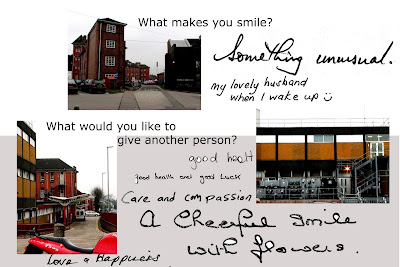 What makes you smile?
Something unusual.
my lovely husband
when I wake up
What would you like to
give another person?
good healt
good health and good luck
Care and compassion
A Cheerful Smile
with flowers.
Love & Happiness